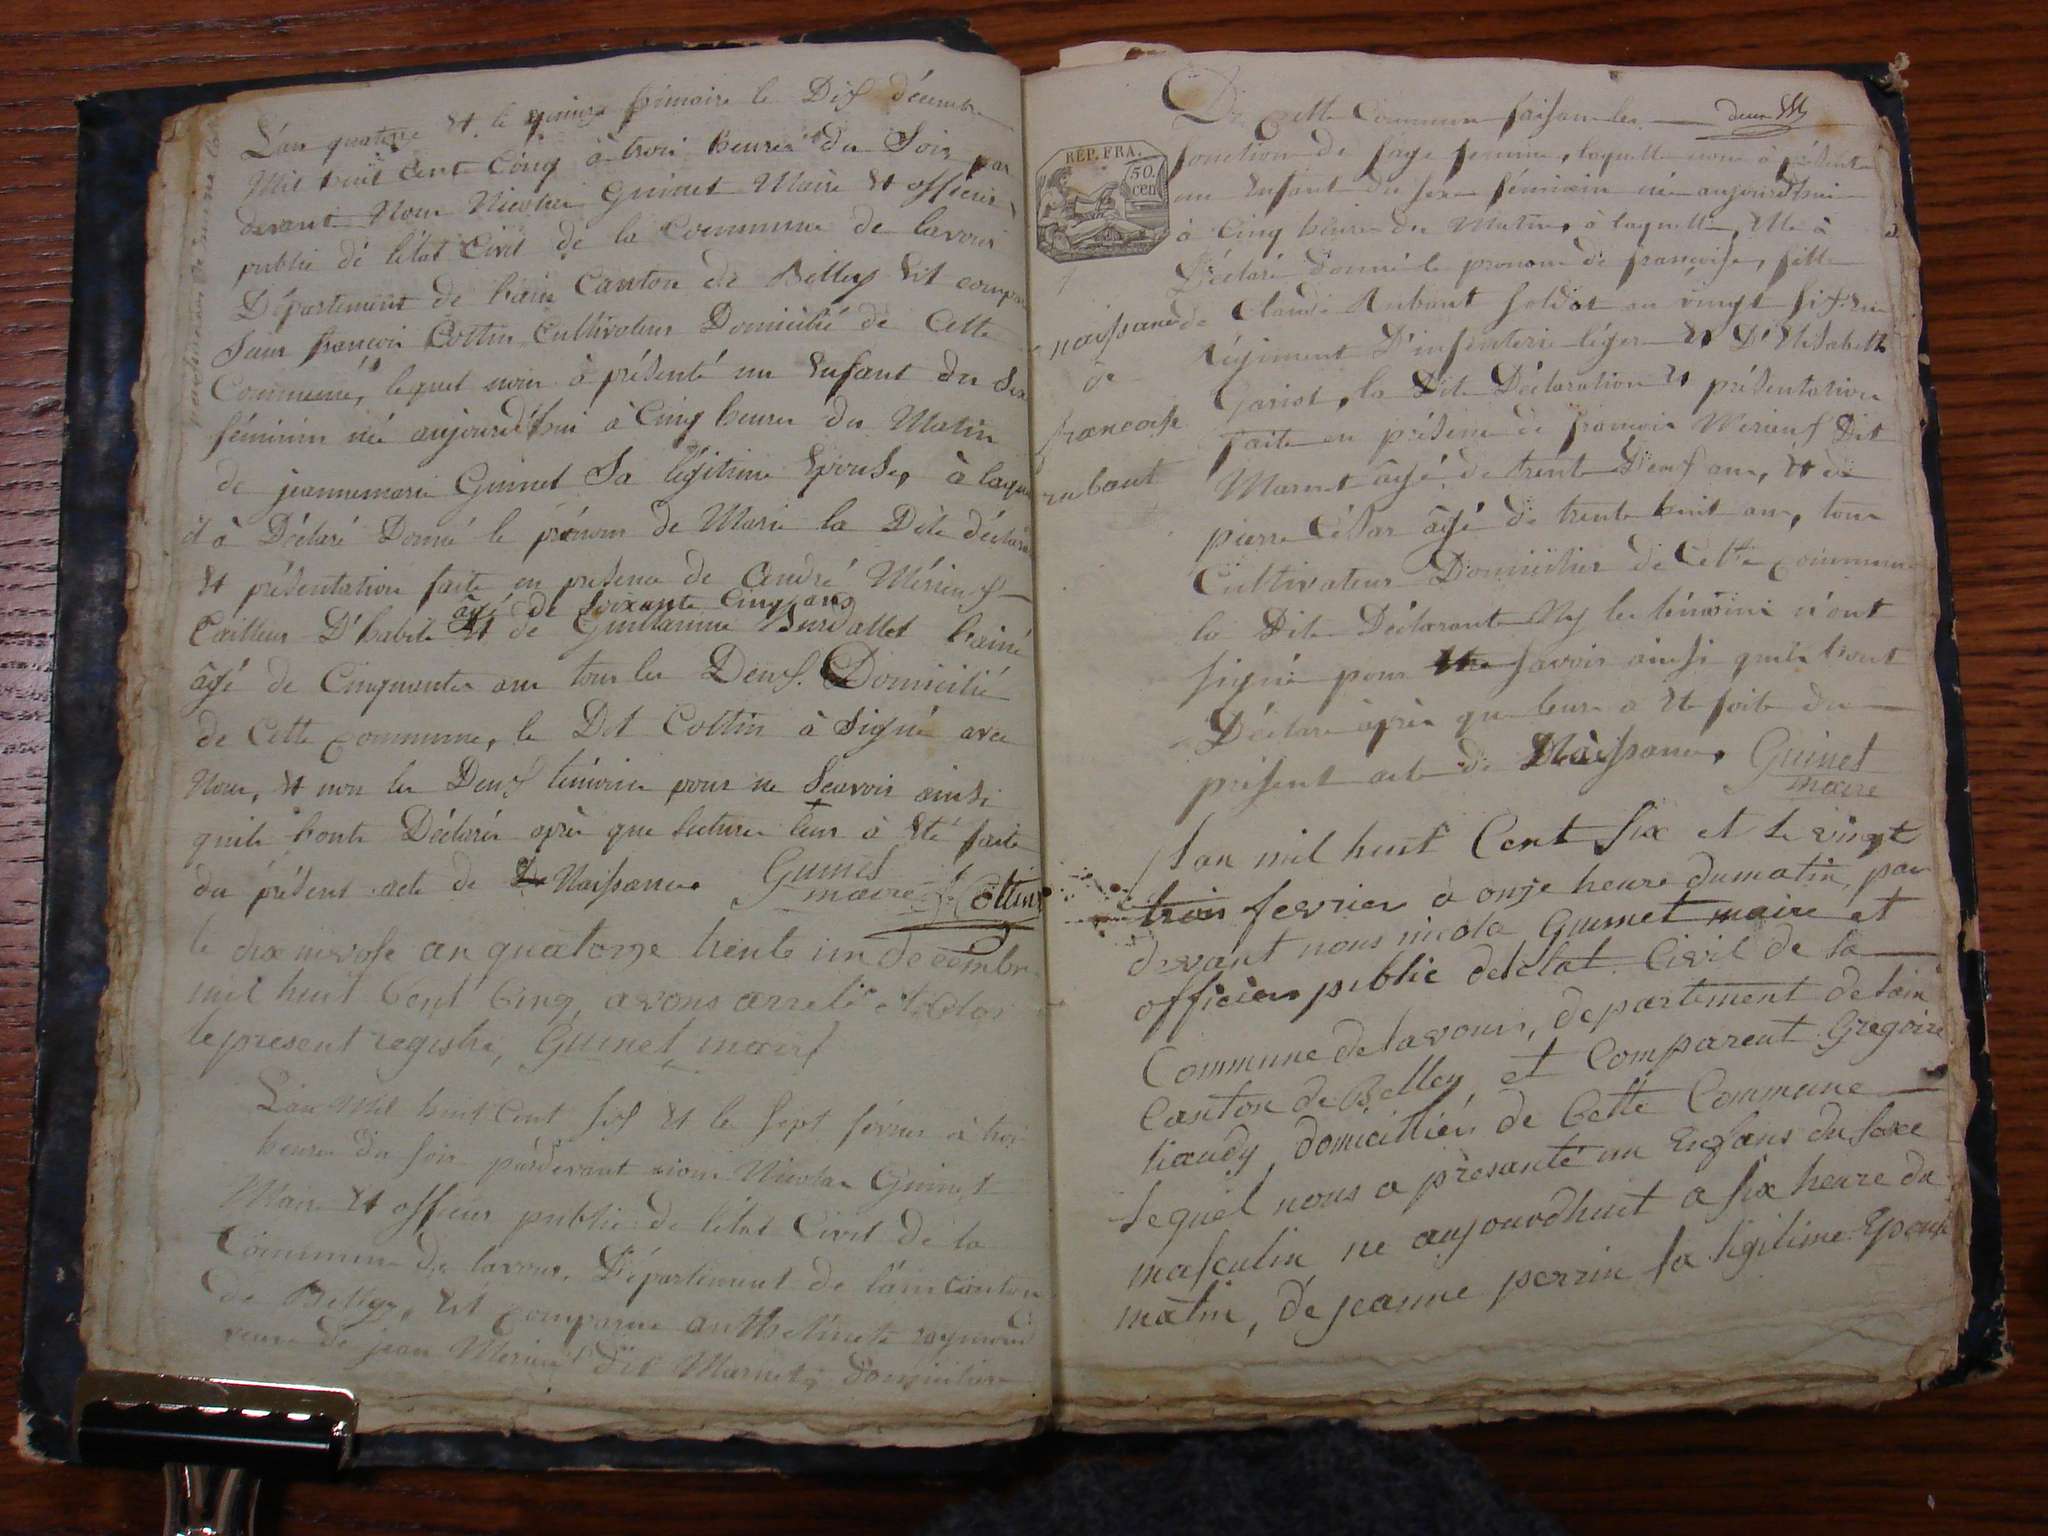 L'an quatre et le quinze frimaire le Dix décembre
Mil huit Cent Cinq à trois heures du Soir par
devant Nous Nicolas Guinet Maire et officier
public de l'état Civil de la Commune de lavour
Département de lain Canton de Belley Est compa
Sam françois Cottin Cultivateur Domicilié de Cette
Commune, lequel nous à présenté un Enfant du Sex
féminin né aujourd'hui à Cinq heures du Matin
de jeannemarie Guinet Sa légitime Epouse, à laque
il à Déclaré Donné le prénom de Marie la Dite déclara
Et présentation faite en presence de André Mérieuf
âgé de Soixante Cinq ans
tailleur D'habit Et de Guillaume Burdallet lainé
âgé de Cinquante ans tous les Deux Domicilié
de Cette Commune, le Dit Cottin à Signé avec
Nous, Et non les Deux témoins pour ne Scavoir ainsi
quils lont Déclarés après que lecture leur à Eté faite
du présent acte de Naissance Guinet
maire Cottin
le dix nivose an quatorze trente un decembre
mil huit Cent Cinq, avons arrete et Clos
le present registre, Guinet maire
L'an Mil huit Cent Six Et le Sept février à troi
heures du Soir pardevant nous Nicolas Guinet
Maire Et officier public de l'état Civil de la
Commune de lavour, Département de lain Canton
de Belley, Est comparue anthelmete raymond
veuve de jean Merieuf Dit Marnet, Domicilier
De Cette Commune faisant les deux
REP. FRA.
50.
cen
fonction de Sage femme, laquelle nous à présenté
un Enfant du Sexe féminin né aujourd'hui
à Cinq heures du Matin, à laquelle, Elle à
Déclaré Donné le prenom de françoise, fille
naissance
de
francoise
rubaut
de Claude Rubaut Soldat au vingt Sixieme
régiment D'infenterie légere Et D'Elisabeth
Gariot, la Dite Déclaration Et présentation
faite en présence de françois Mérieuf Dit
Marnet âgé de trente Deuf ans, Et de
pierre César âgé de trente huit ans, tous
Cultivateur Domicilier de Cette Commune
la Dite Déclarante Ny les témoins n'ont
signé pour savoir ainsi quils lront
Déclare après que leurs a Ete faite du
présent acte de Naissance, Guinet
maire
lan mil huit Cent Six et le vingt
trois fevrier a onze heure dumatin, par
devant nous nicola Guinet maire et
officier public deletat Civil de la
Commune de lavour, departement delain
Canton de Belley, et Comparent Gregoire
liaudy domicilliér de Cette Commune
lequel nous a présanté un Enfans du Sexe
masculin ne aujourdhuit a six heure du
matin, de jeanne perrin sa ligitime Epouse